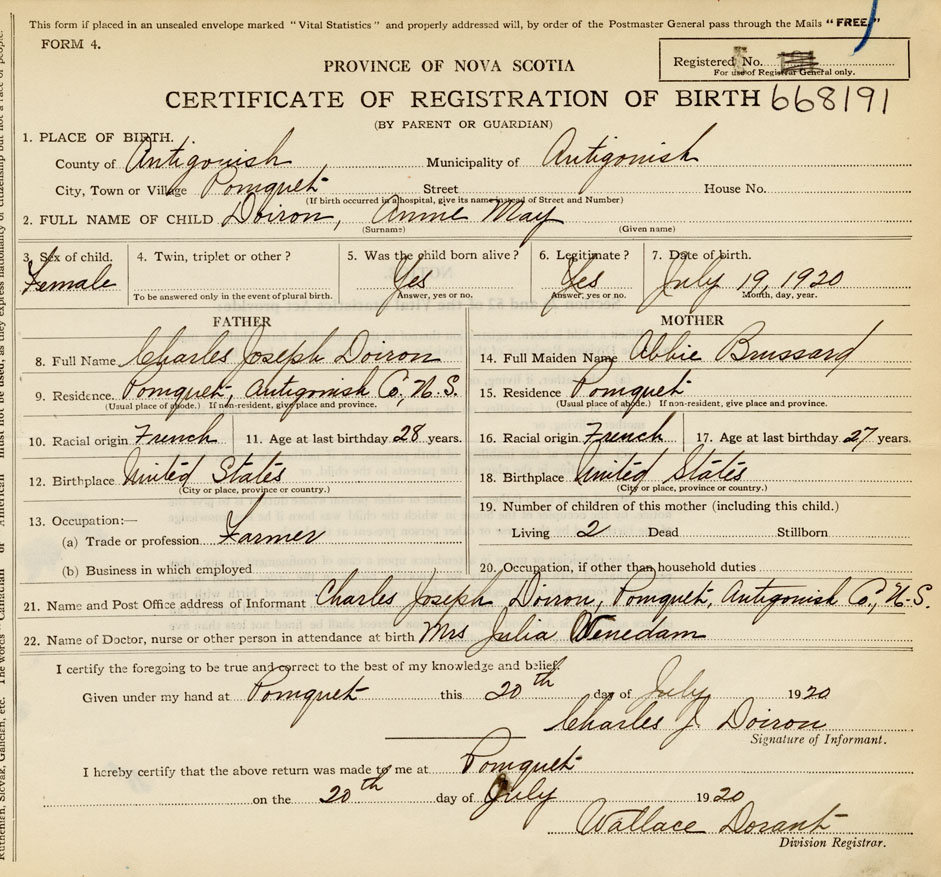 This form if placed in an unsealed envelope marked "Vital Statistics" and properly addressed will, by order of the Postmaster General pass through the Mails "FREE"
FORM 4.
Registered No.
For use of Registrar General only.
PROVINCE OF NOVA SCOTIA
CERTIFICATE OF REGISTRATION OF BIRTH 668191
(BY PARENT OR GUARDIAN)
1. PLACE OF BIRTH.
County of Antigonish Municipality of Antigonish
City, Town or Village Pomquet Street House No.
(If birth occurred in a hospital, give its name instead of Street and Number)
2. FULL NAME OF CHILD Doiron, Annie May
(Surname) (Given name)
3. Sex of child. 4. Twin, triplet or other? 5. Was the child born alive? 6. Legitimate? 7. Date of birth.
Female Yes Yes July 19, 1920
To be answered only in the event of plural birth. Answer, yes or no. Answer, yes or no. Month, day, year.
FATHER MOTHER
8. Full Name Charles Joseph Doiron 14. Full Maiden Name Abbie Brussard
9. Residence. Pomquet, Antigonish Co., N.S. 15. Residence Pomquet
(Usual place of abode.) If non-resident, give place and province. (Usual place of abode.) If non-resident, give place and province.
10. Racial origin French 11. Age at last birthday 28 years. 16. Racial origin French 17. Age at last birthday 27 years.
12. Birthplace United States 18. Birthplace United States
(City or place, province or country.) (City or place, province or country.)
13. Occupation:— 19. Number of children of this mother (including this child.)
(a) Trade or profession Farmer Living 2 Dead Stillborn
(b) Business in which employed 20. Occupation, if other than household duties
21. Name and Post Office address of Informant Charles Joseph Doiron, Pomquet, Antigonish Co., N.S.
22. Name of Doctor, nurse or other person in attendance at birth Mrs Julia Venedam
I certify the foregoing to be true and correct to the best of my knowledge and belief.
Given under my hand at Pomquet this 20th day of July 1920
Charles J. Doiron
Signature of Informant.
I hereby certify that the above return was made to me at Pomquet
on the 20th day of July 1920
Wallace Dorant
Division Registrar.